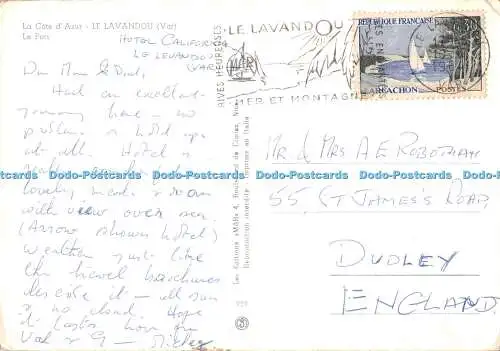 La Côte d'Azur - LE LAVANDOU (Var)
Le Port
HOTEL CALIFORNIA
LE LEVANDOU
(VAR)
Dear Mum & Dad,
Had an excellent
journey here - no
problems & hotel
at all. Hotel is
lovely, meals & room
with view over sea.
(Arrow shows hotel)
Weather just like
the travel brochures
describe it - all sun
& no cloud. Hope
it lasts, love from
Val &
Les Editions «MAR» 4, Boulevard de Cimiez, Nice
Reproduction interdite - Imprimé en Italie
LE LAVANDOU
MER ET MONTAGNE
RÉPUBLIQUE FRANÇAISE
0,30
ARCACHON
POSTES
MR & MRS A E ROBOTHAM
55, ST JAMES'S ROAD,
DUDLEY
ENGLAND.
Dodo-Postcards Dodo-Postcards Dodo-Postcards Dodo-Postcards Dodo-Postcards